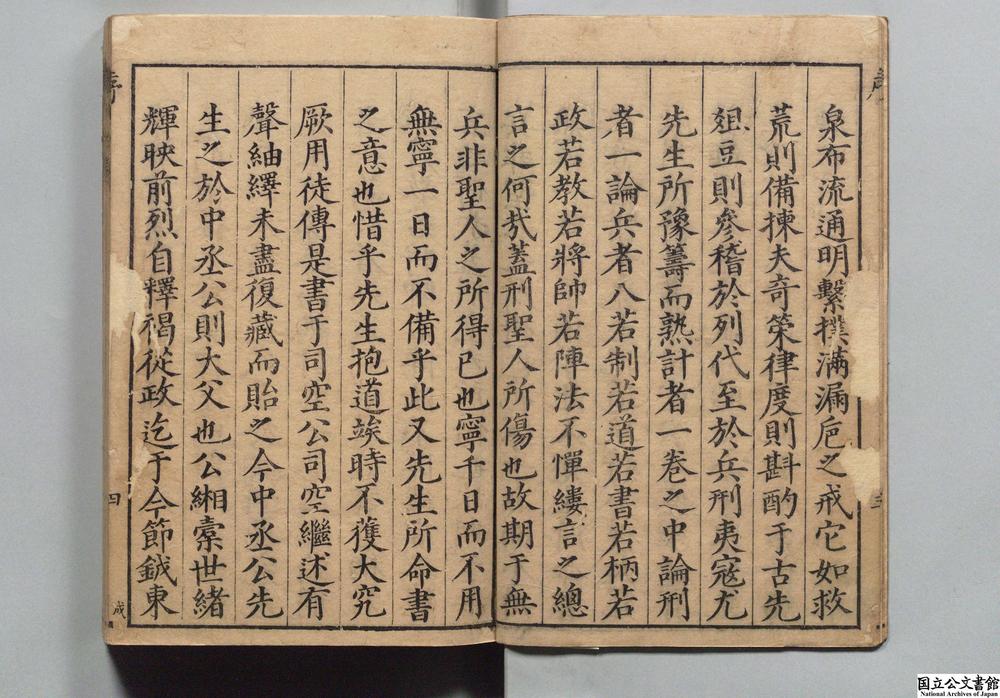 泉布流通明繫撲滿漏巵之戒它如救
荒則備揀夫竒策律度則斟酌于古先
爼豆則參稽於列代至於兵刑夷寇尤
先生所豫籌而熟計者一卷之中論刑
者一論兵者八若制若道若書若柄若
政若教若將帥若陣法不憚縷言之總
言之何㢤蓋刑聖人所傷也故期于無
兵非聖人之所得已也寧千日而不用
無寧一日而不備乎此又先生所命書
之意也惜乎先生抱道竢時不獲大究
厥用徒傳是書于司空公司空繼述有
聲紬繹未盡復藏而貽之今中丞公先
生之於中丞公則大父也公緗橐世緒
輝映前烈自釋褐從政迄于今節鉞東
三
四
成
国立公文書館
National Archives of Japan